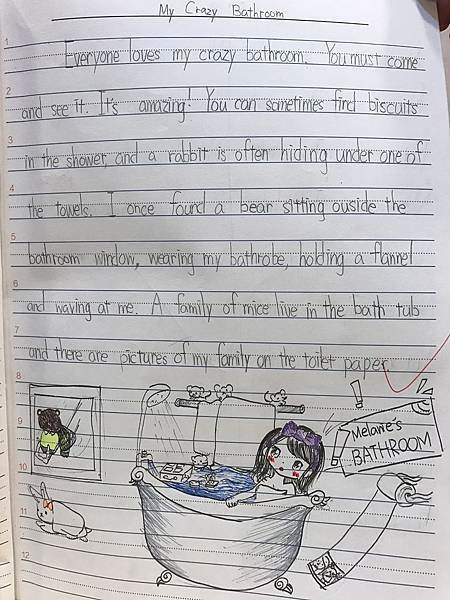 My Crazy Bathroom
1
Everyone loves my crazy bathroom. You must come
2
and see it. It's amazing! You can sometimes find biscuits
3
in the shower, and a rabbit is often hiding under one of
4
the towels. I once found a bear sitting ouside the
5
bathroom window, wearing my bathrobe, holding a flannel
6
and waving at me. A family of mice live in the bath tub
7
and there are pictures of my family on the toilet paper.
8
9
10
11
12
Melanie's
BATHROOM